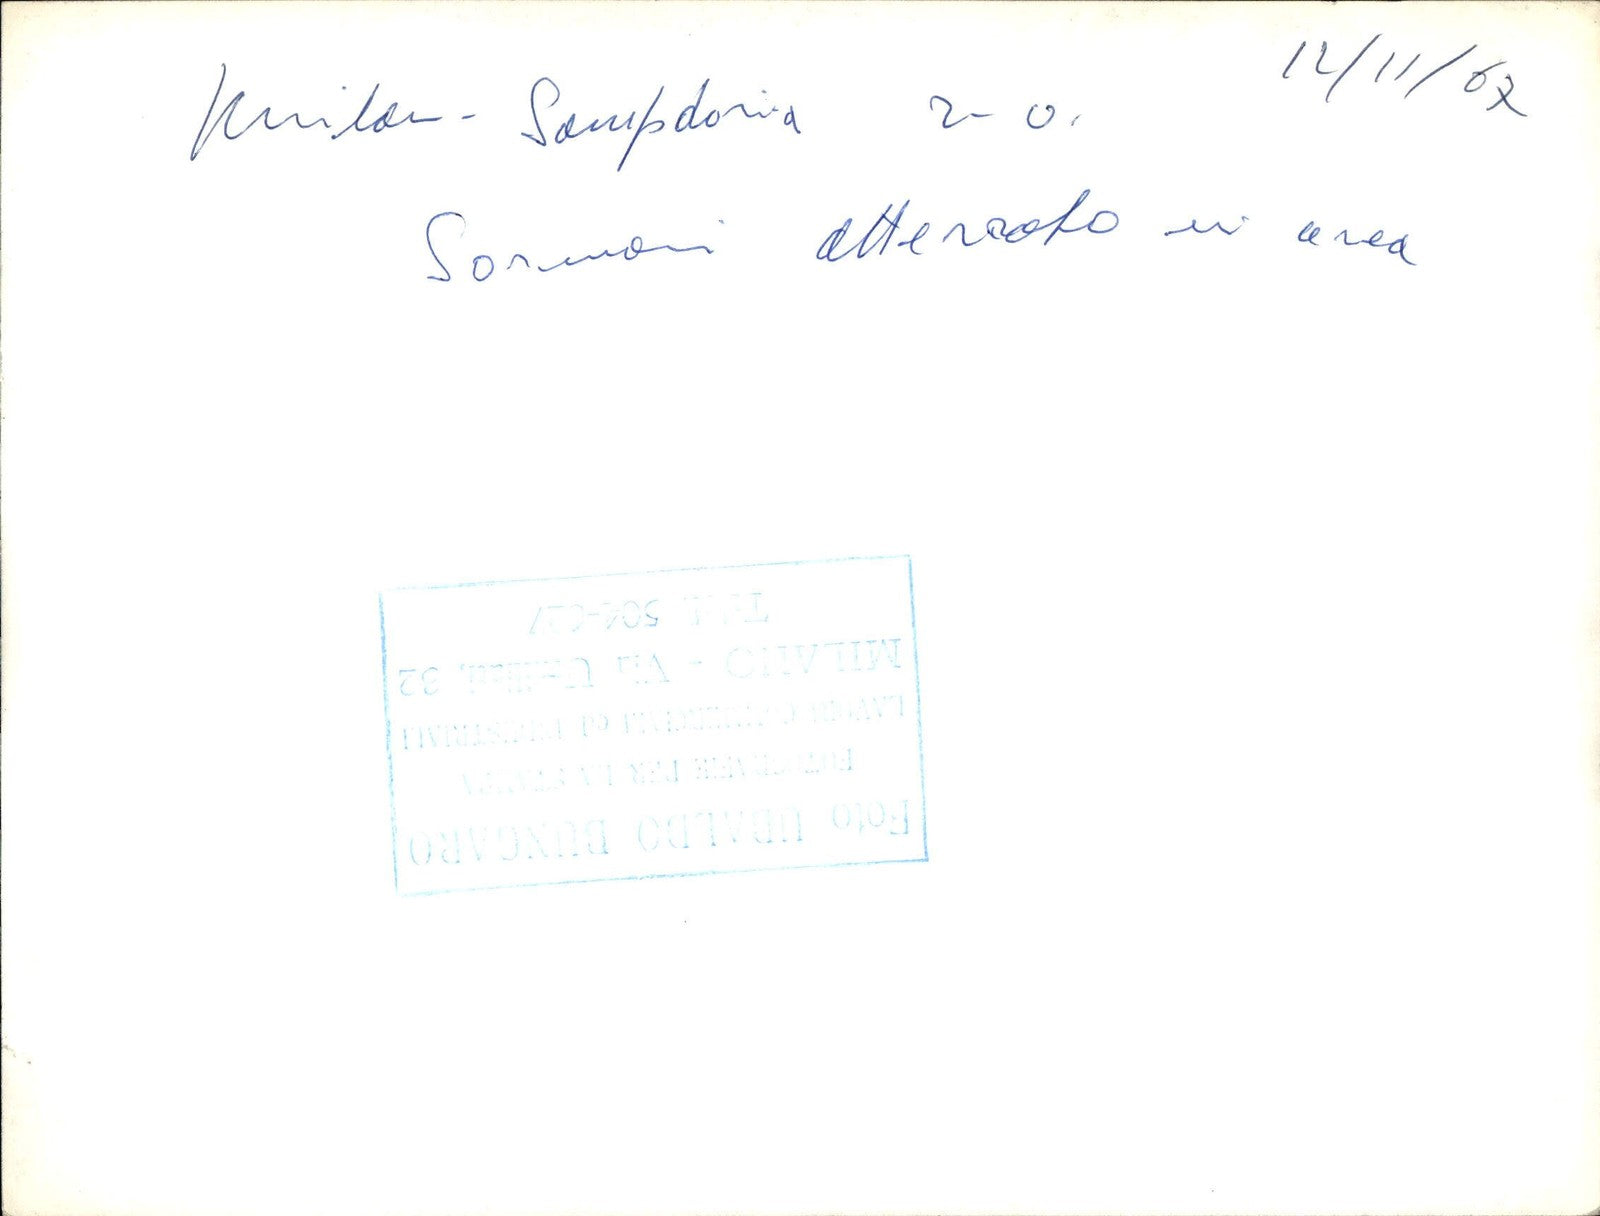 12/11/67
Milan - Sampdoria 2-0.
Sormani atterrato in area
Foto UBALDO BUNGARO
FOTOGRAFIE PER LA STAMPA
LAVORI COMMERCIALI ed INDUSTRIALI
MILANO - Via 32
Tel. 504-